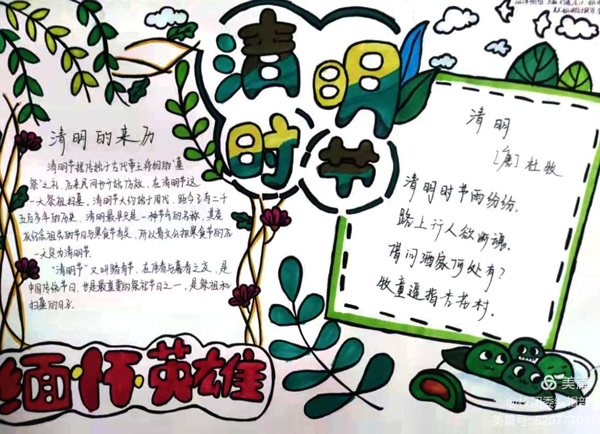 清明时节
清明的来历
清明节据传始于古代帝王将相的“墓
祭”之礼,后来民间也
一天祭祖扫墓,清明节大约始于周代,距今已有二千
五百多年的历史,清明最早只是一种节气的名称,其变
成纪念祖先的节日与寒食节有关,
一天定为清明节.
“清明节”又叫踏青节,在仲春与暮春之交,是
中国传统节日,也是最重要的祭祀节日之一,是祭祖和
扫墓的日子.
清明
[唐]杜牧
清明时节雨纷纷,
路上行人欲断魂.
借问酒家何处有?
牧童遥指杏花村.
缅·怀·英雄
美篇